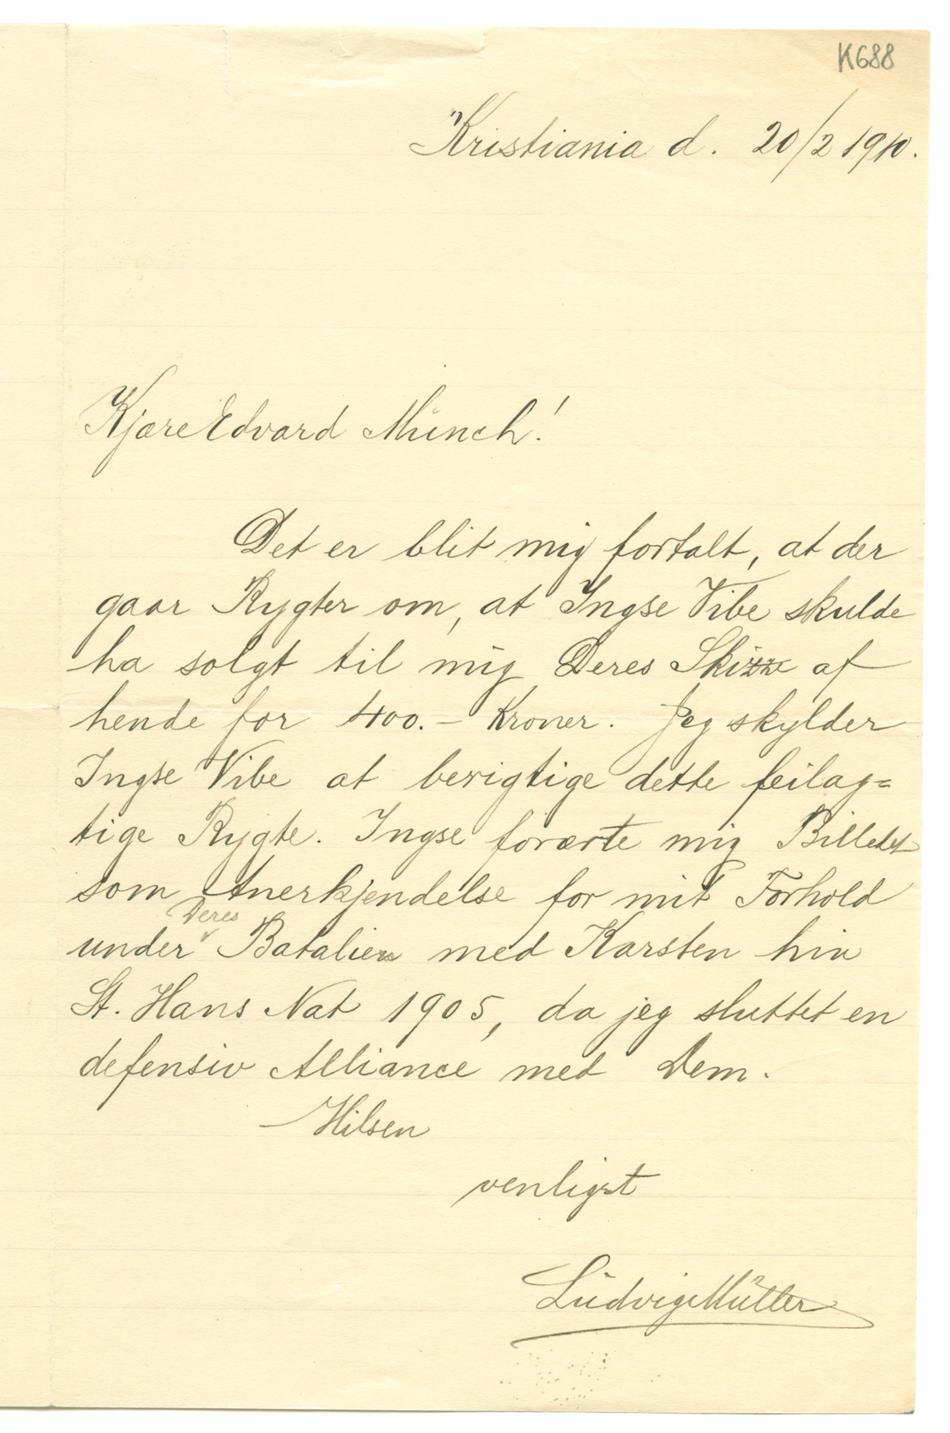 K688
Kristiania d. 20/2 1910.
Kjære Edvard Munch!
Det er blit mig fortalt, at der
gaar Rygter om, at Ingse Vibe skulde
ha solgt til mig Deres Skizze af
hende for 400.- Kroner. Jeg skylder
Ingse Vibe at berigtige dette feilag=
tige Rygte. Ingse forærte mig Billedet
som Anerkjendelse for mit Forhold
Deres
under Batalien med Karsten hin
St. Hans Nat 1905, da jeg sluttet en
defensiv Alliance med Dem.
Hilsen
venligst
Ludvig Müller